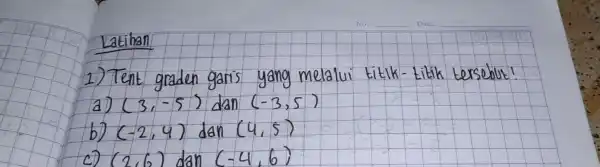 No. Date.
Latihan
1) Tent graden garis yang melalui titik-titik tersebut!
a) (3, -5) dan (-3, 5)
b) (-2, 4) dan (4, 5)
c) (2, 6) dan (-4, 6)